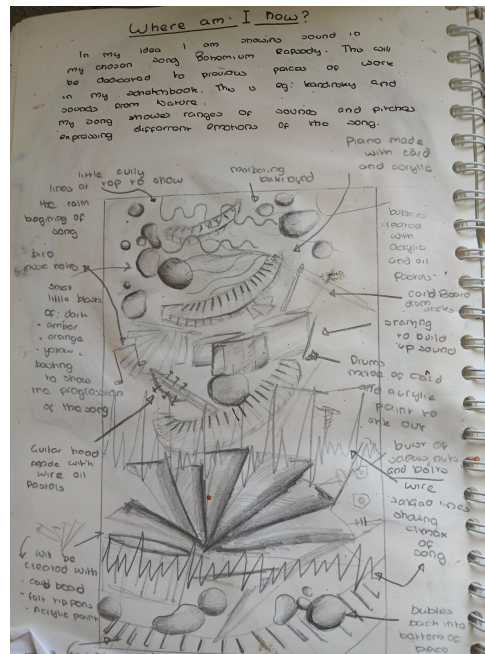 Where am I now?
In my idea I am showing sound in
my chosen song Bohomium Rapsody. This will
be dedicared to previous peices of work
in my sketchbook. This is eg: kandinsky and
sounds from Nature.
my song showes ranges of sounds and pitches
expressing differrent emotions of the song.
little curly
lines at top to show
the calm
begining of
song
marbeling
background
Piano made
with card
and acrylic
bubbles
created
with
acrylic
and oil
pastels
card Board
drum
sticks
biro
music notes
small
little blasts
of: dark
· amber
· orange
· yellow
to show
the progression
of the song
starting
to build
up sound
Drums
made of card
and acrylic
paint to
Guitar head
made with
wire oil
pastels
burst of
screws nuts
and bolts
wire
lines
showing
climax
of
song
will be
created with
· card
· Acrylic paint
bubles
back into
bottom of